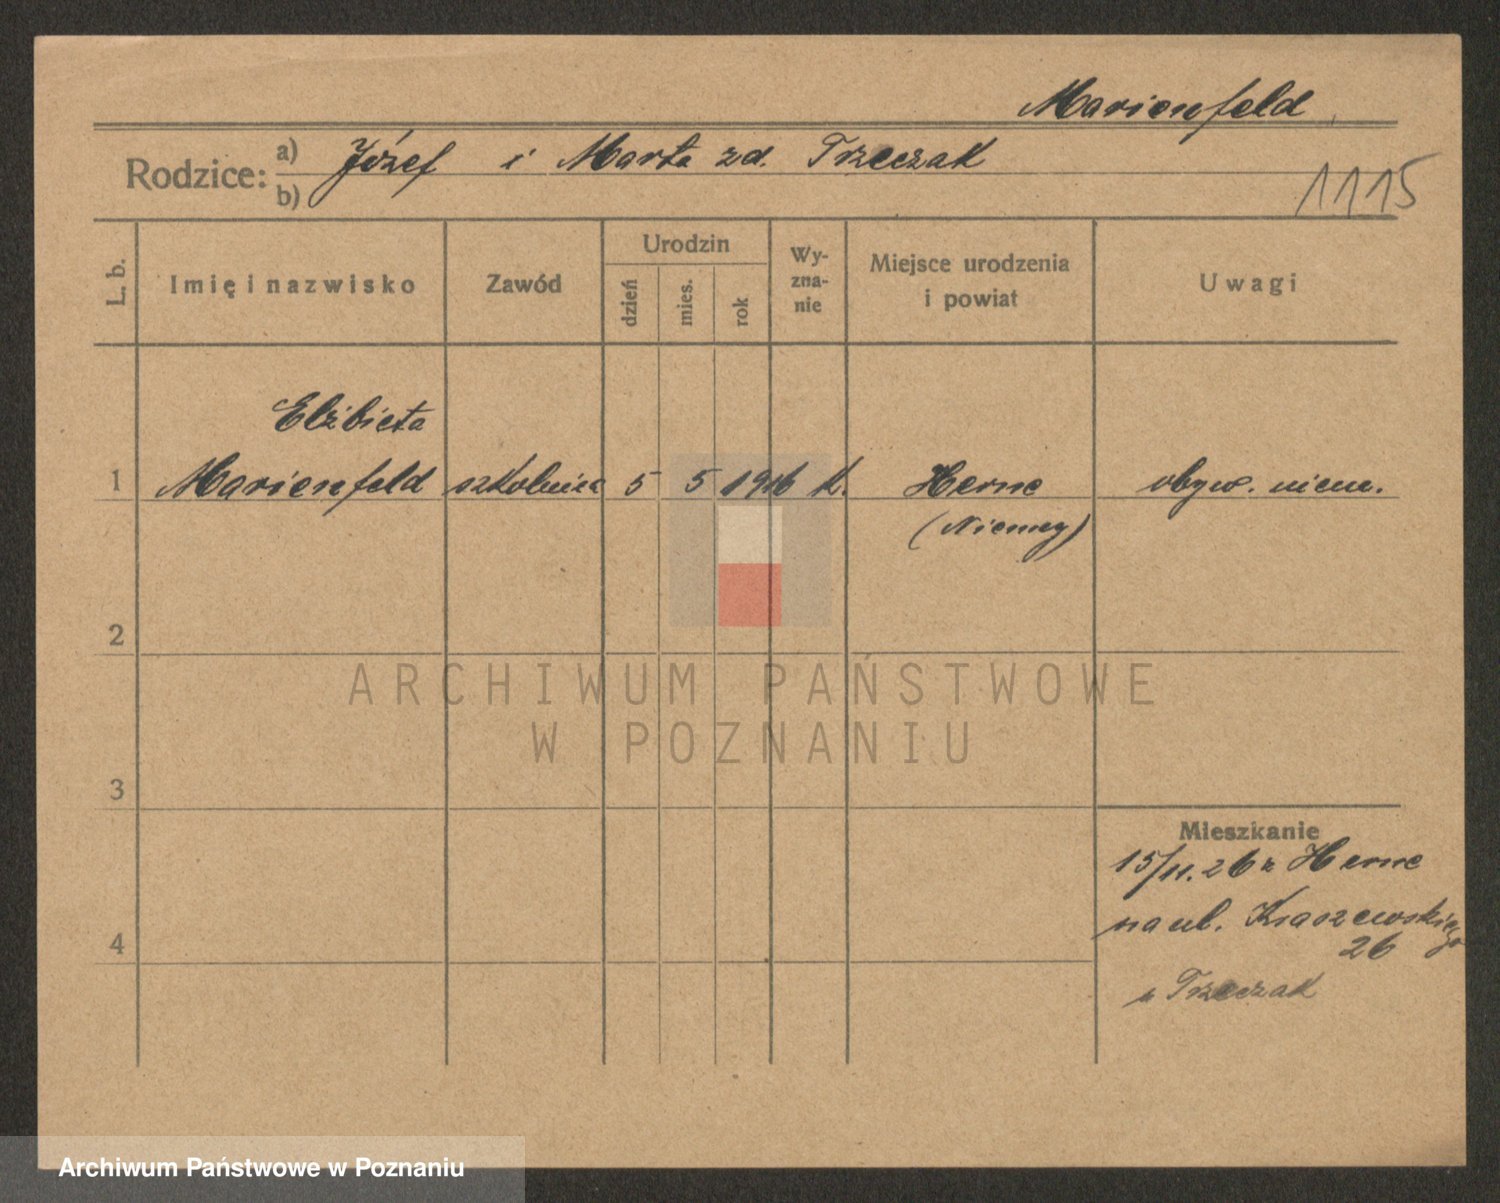 Marienfeld
Rodzice: a) Józef i Marta zd. Trzeczak
b)
1115
L. b.
Imię i nazwisko
Zawód
Urodzin
dzień
mies.
rok
Wy-
zna-
nie
Miejsce urodzenia
i powiat
Uwagi
Elżbieta
1 Marienfeld szkolnica 5 5 1916 k. Herne obyw. niem.
(Niemcy)
2
ARCHIWUM PAŃSTWOWE
W POZNANIU
3
Mieszkanie
15/11. 26 z Herne
na ul. Kraszewskiego
26
4
u Trzeczak
Archiwum Państwowe w Poznaniu